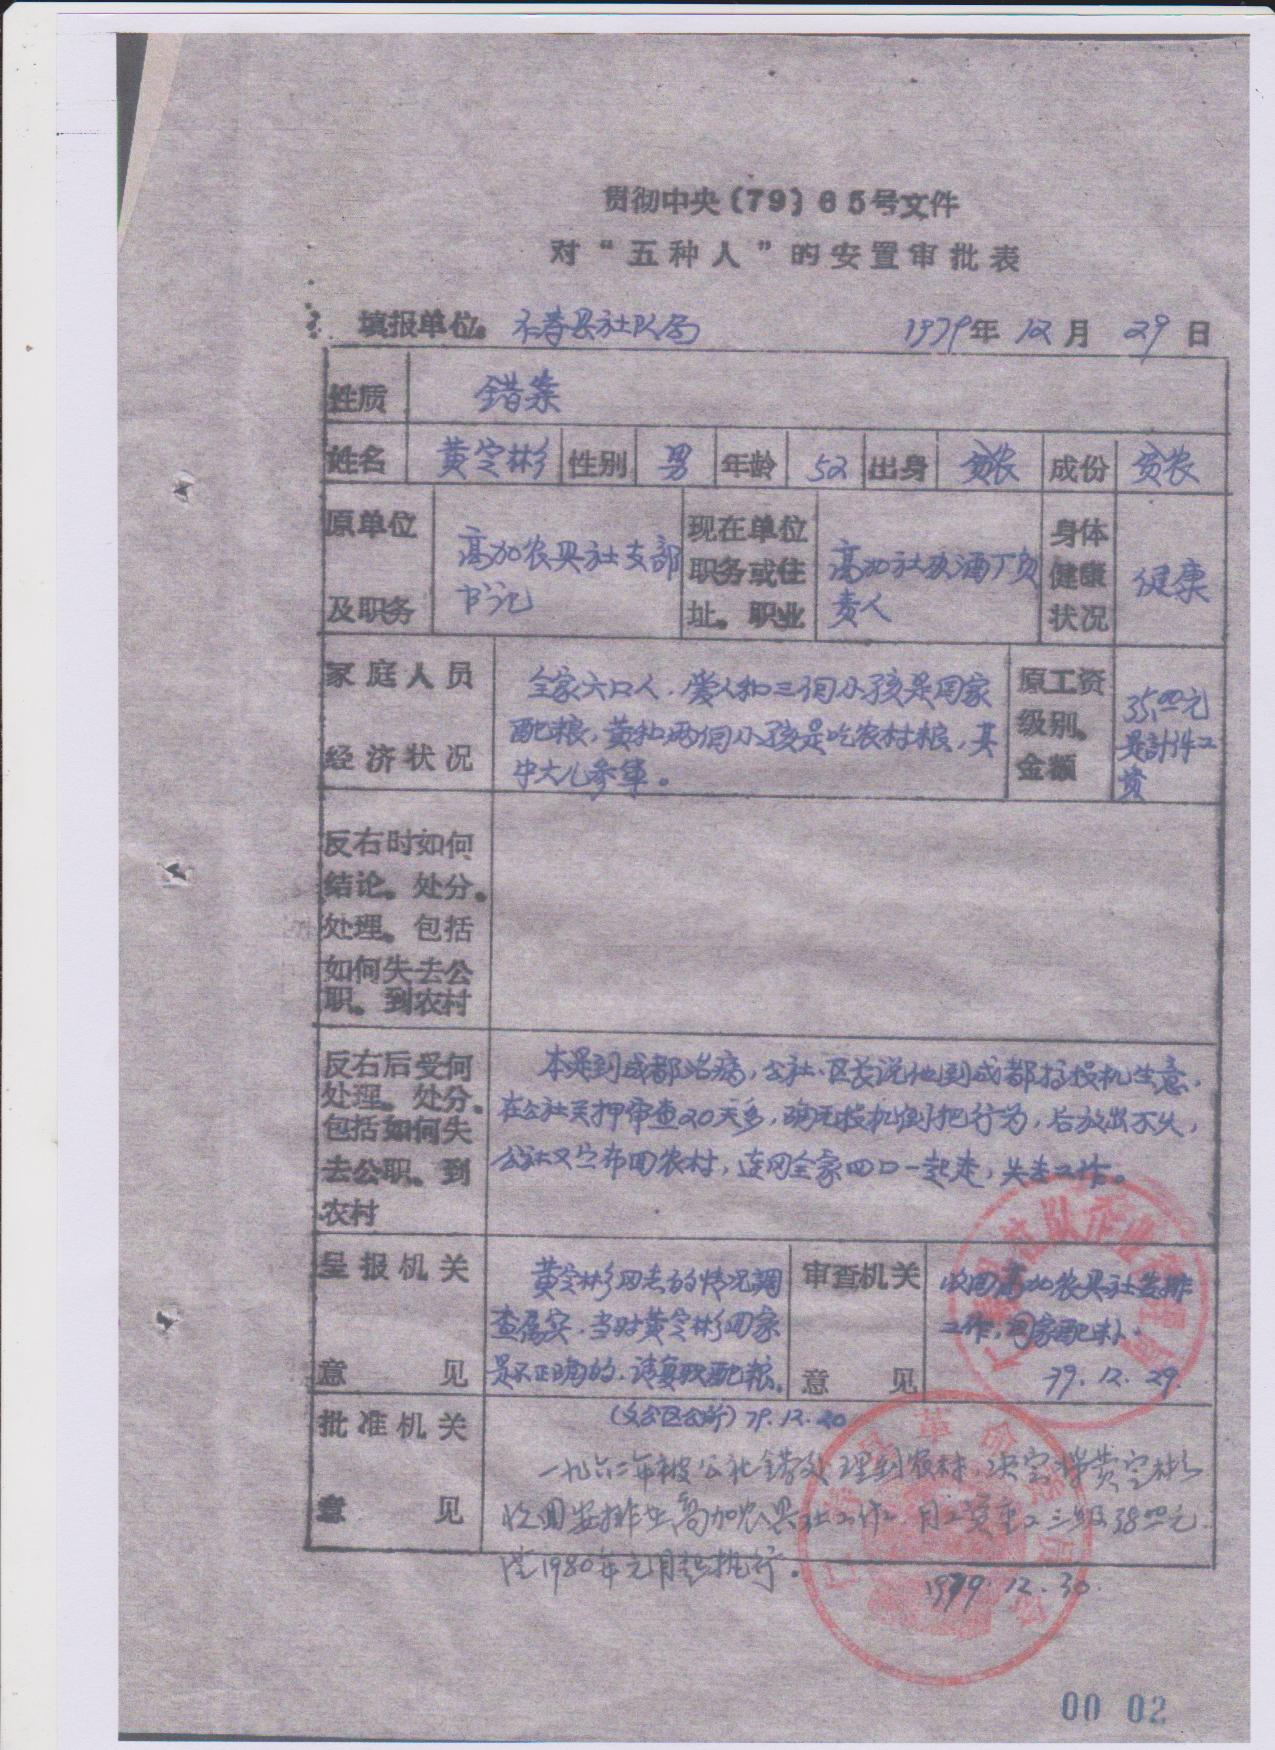 贯彻中央（79）65号文件
对“五种人”的安置审批表
填报单位。仁寿县社队局 1979年12月29日
性质 错案
姓名 黄定彬 性别 男 年龄 52 出身 贫农 成份 贫农
原单位
及职务
高加农具社支部
书记
现在单位
职务或住
址。职业
高加社
酒厂负
责人
身体
健康
状况
健康
家庭人员
经济状况
全家六口人，爱人和三个小孩是国家
配粮，黄和两个小孩是吃农村粮，其
中大儿参军。
原工资
级别。
金额
35.00元
是計件工
资
反右时如何
结论。处分。
处理。包括
如何失去公
职。到农村
反右后受何
处理。处分。
包括如何失
去公职。到
农村
本是到成都治病，公社、区长说他到成都搞投机生意，
在公社关押审查20天多，确无投机倒把行为，后放出不久，
公社又宣布回农村，连同全家四口一起走，失去工作。
呈报机关
意见
黄定彬同志的情况调
查属实，当时黄定彬回家
是不正确的，请复职配粮。
（文公区公所）79.12.20
审查机关
意见
收回高加农具社安排
工作，国家配补。
79.12.29.
批准机关
意见
一九六二年被公社错处理到农村，决定将黄定彬
收回安排在高加农具社工作，月工资重工三级38.00元
从1980年元月起执行。
1979.12.30.
00 02